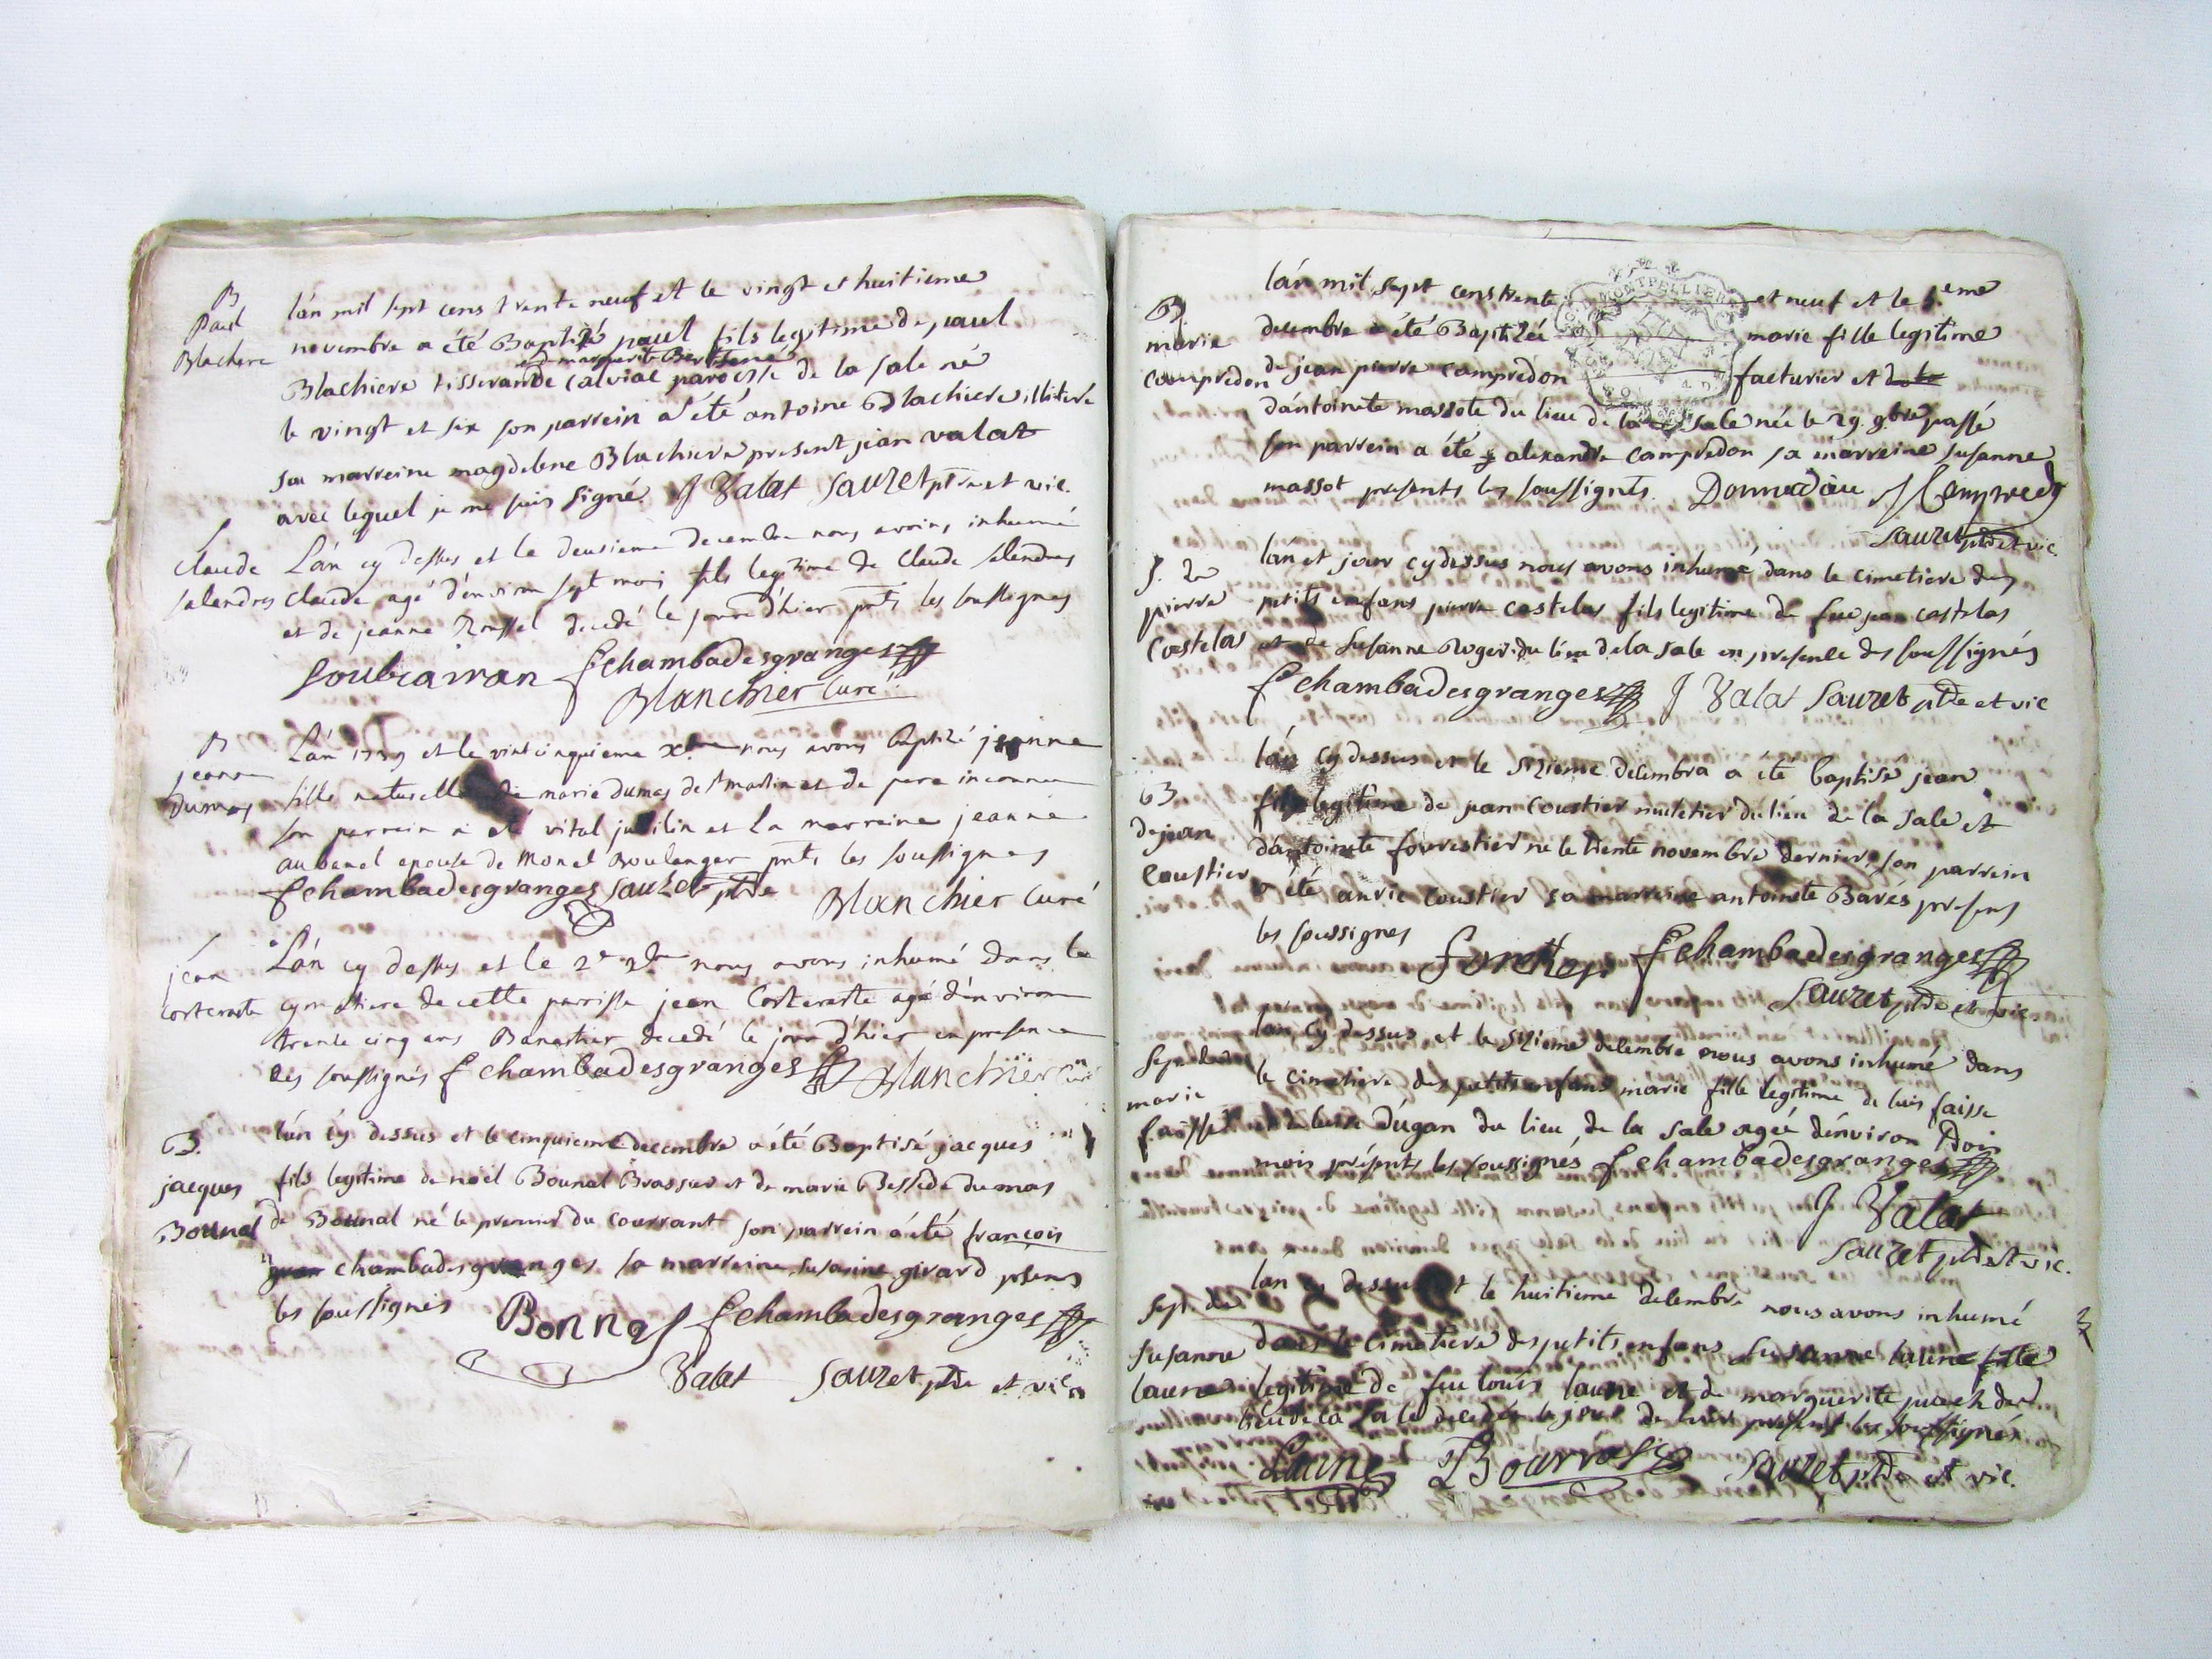 B
Paul
Blachere
l'an mil sept cens trente neuf et le vingt et huitieme
novembre a été Baptisé paul fils legitime de paul
et de marguerite
Blachiere tisserand de calviac paroisse de la sale né
le vingt et six son parrein a été antoine Blachiere illiteré
sa marreine magdelene Blachiere present jean valat
avec lequel je me suis signé J Valat Sauzet ptre et vic.
S
Claude
salendres
L'an cy dessus et le deusieme decembre nous avons inhumé
Claude agé d'environ sept mois fils legitime de Claude salendres
et de jeanne Roussel decedé le jour d'hier pnts les soussignes
Soubeairan fchambadesgranges
Blanchier curé
B
jeanne
Dumas
L'an 1739 et le vint cinquieme nous avons baptisé jeanne
fille naturelle de marie dumas de st martin et de pere inconnu
son parrein a eté vital et la marreine jeanne
epouse de monel Boulanger pnts les soussignes
fchambadesgranges Sauzet ptre Blanchier curé
jean
L'an cy dessus et le 2e nous avons inhumé dans le
cymetiere de cette parisse jean agé d'environ
trente cinq ans decedé le jour d'hier en presence
des soussignés fchambadesgranges Blanchier curé
B.
jacques
Bounal
l'an cy dessus et le cinquieme decembre a été Baptisé jacques
fils legitime de noël Bounal Brassier et de marie Bessede du mas
de Bounal né le premier du courrant son parrein a été françois
chambadesgranges sa marreine susanne girard presens
les soussignés Bonnal fchambadesgranges
Valat Sauzet ptre et vic
B
marie
compredon
l'an mil sept cens trente et neuf et le eme
decembre a été Baptizée marie fille legitime
de jean pierre compredon facturier et
d'antoinete massote du lieu de la sale née le 29. 9bre passé
son parrein a été alexandre compredon sa marreine susanne
massot presents les soussignés. Donnadieu
Sauzet ptre et vic.
S. de
pierre
Castelas
lan et jour cy dessus nous avons inhumé dans le cimetiere des
petits enfans pierre castelas fils legitime de feu jean castelas
et de susanne Roger du lieu de la sale en presence des soussignés
fchambadesgranges J Valat Sauzet ptre et vic
B
de jean
Coustier
l'an cy dessus et le sizieme decembre a été baptisé jean
fils legitime de jean coustier muletier du lieu de la sale et
d'antoinete fourestier né le trente novembre dernier son parrein
a été coustier sa marreine antoinete Barés presens
les soussignes fchambadesgranges
Sauzet ptre et vic
Sep. de
marie
faisse
lan cy dessus et le sizieme decembre nous avons inhumé dans
le cimetiere des petits enfans marie fille legitime de luis faisse
et de dugan du lieu de la sale agée d'environ
mois présents les soussignés fchambadesgranges
J Valat
Sauzet ptre et vic.
Sep. de
susanne
laune
lan cy dessus et le huitieme decembre nous avons inhumé
dans le cimetiere des petits enfans susanne laune fille
legitime de feu louis laune et de marguerite puech du
lieu de la sale decedée le jour de hier presens les soussignés
Laune Sauzet ptre et vic.